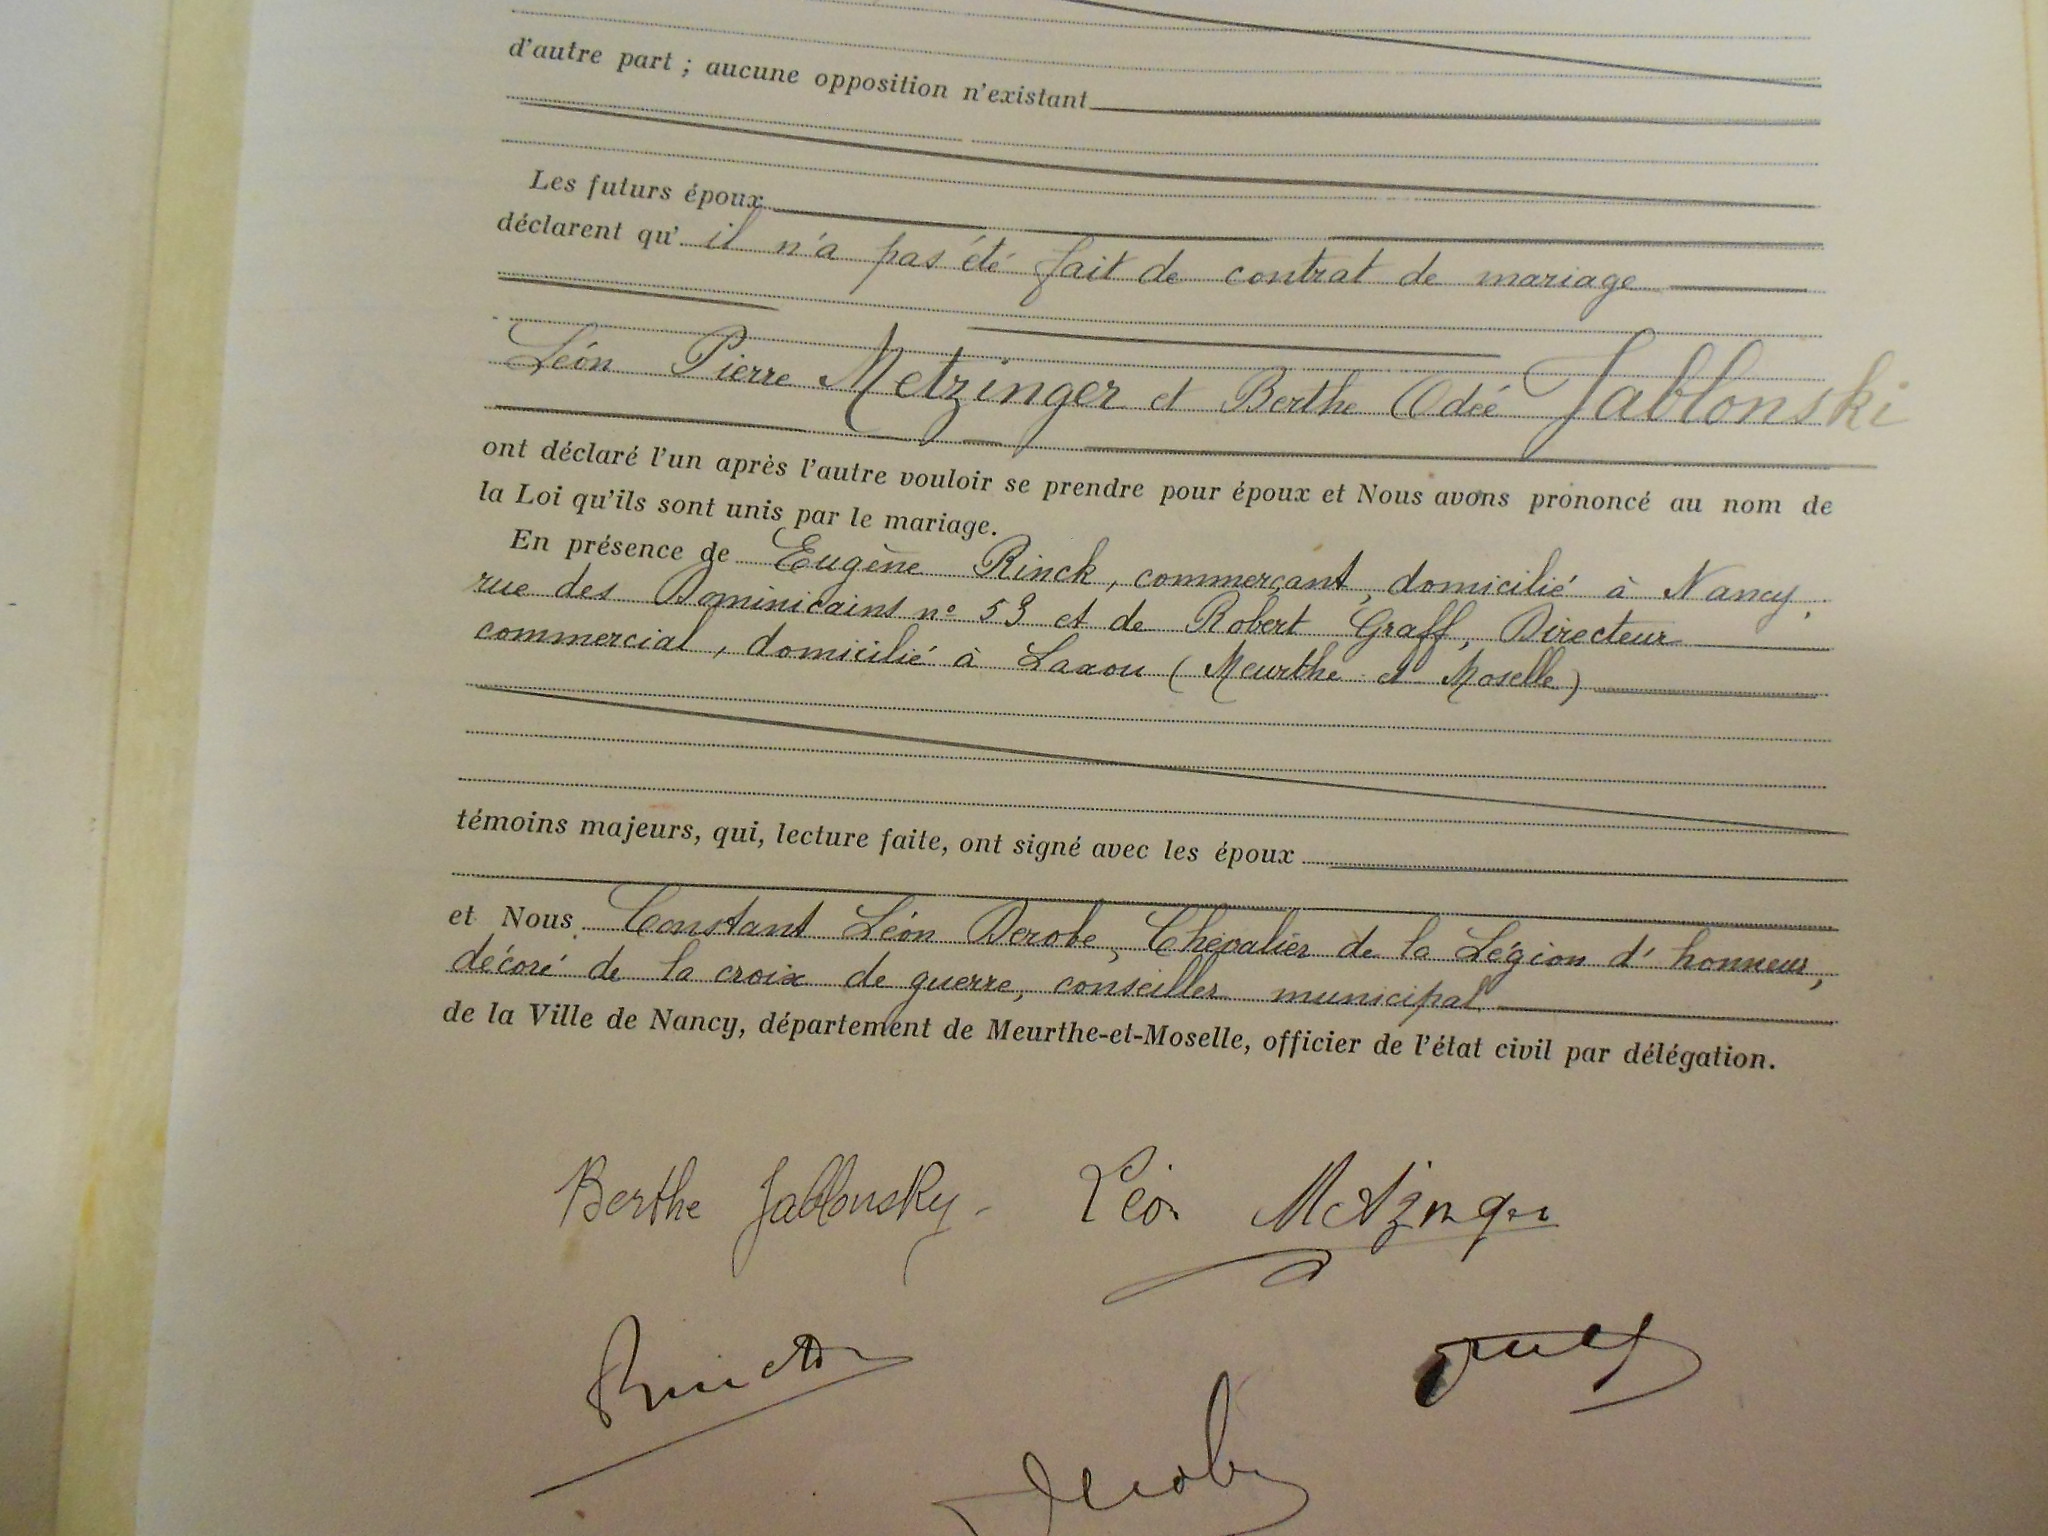 d'autre part ; aucune opposition n'existant
Les futurs époux
déclarent qu' il n'a pas été fait de contrat de mariage
Léon Pierre Metzinger et Berthe Odée Jablonski
ont déclaré l'un après l'autre vouloir se prendre pour époux et Nous avons prononcé au nom de
la Loi qu'ils sont unis par le mariage.
En présence de Eugène Rinck, commerçant, domicilié à Nancy,
rue des Dominicains nº 53 et de Robert Graff, Directeur
commercial, domicilié à Laxou (Meurthe et Moselle)
témoins majeurs, qui, lecture faite, ont signé avec les époux
et Nous Constant Léon Derobe, Chevalier de la Légion d'honneur,
décoré de la croix de guerre, conseiller municipal
de la Ville de Nancy, département de Meurthe-et-Moselle, officier de l'état civil par délégation.
Berthe Jablonsky - Léon Metzinger